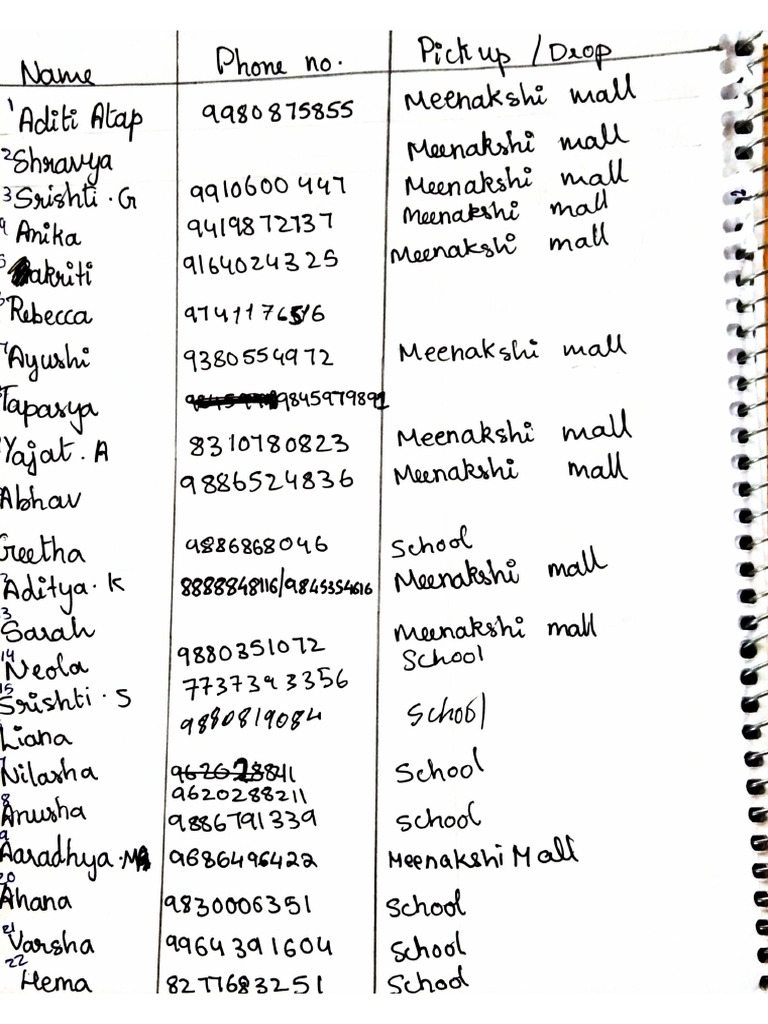 Name Phone no. Pickup / Drop
1 Aditi Atap 9980875855 Meenakshi mall
2 Shravya Meenakshi mall
3 Srishti . G 9910600447 Meenakshi mall
4 Anika 9419872737 Meenakshi mall
5 akriti 9164024325 Meenakshi mall
6 Rebecca
7 Ayushi 9380554972 Meenakshi mall
Tapasya 9845979891
Yajat . A 8310780823 Meenakshi mall
Abhav 9886524836 Meenakshi mall
Geetha 9886868046 School
2 Aditya . K 8888848116/9845354616 Meenakshi mall
3 Sarah Meenakshi mall
14 Neola 9880351072 School
15 Srishti . S 7737393356
Liana 9880819084 School
7 Nilasha School
9620288211
8 Anusha 9886791339 School
9 Aaradhya . M 9686496422 Meenakshi Mall
20 Ahana 9830006351 School
21 Varsha 9964391604 School
22 Hema 8277683251 School